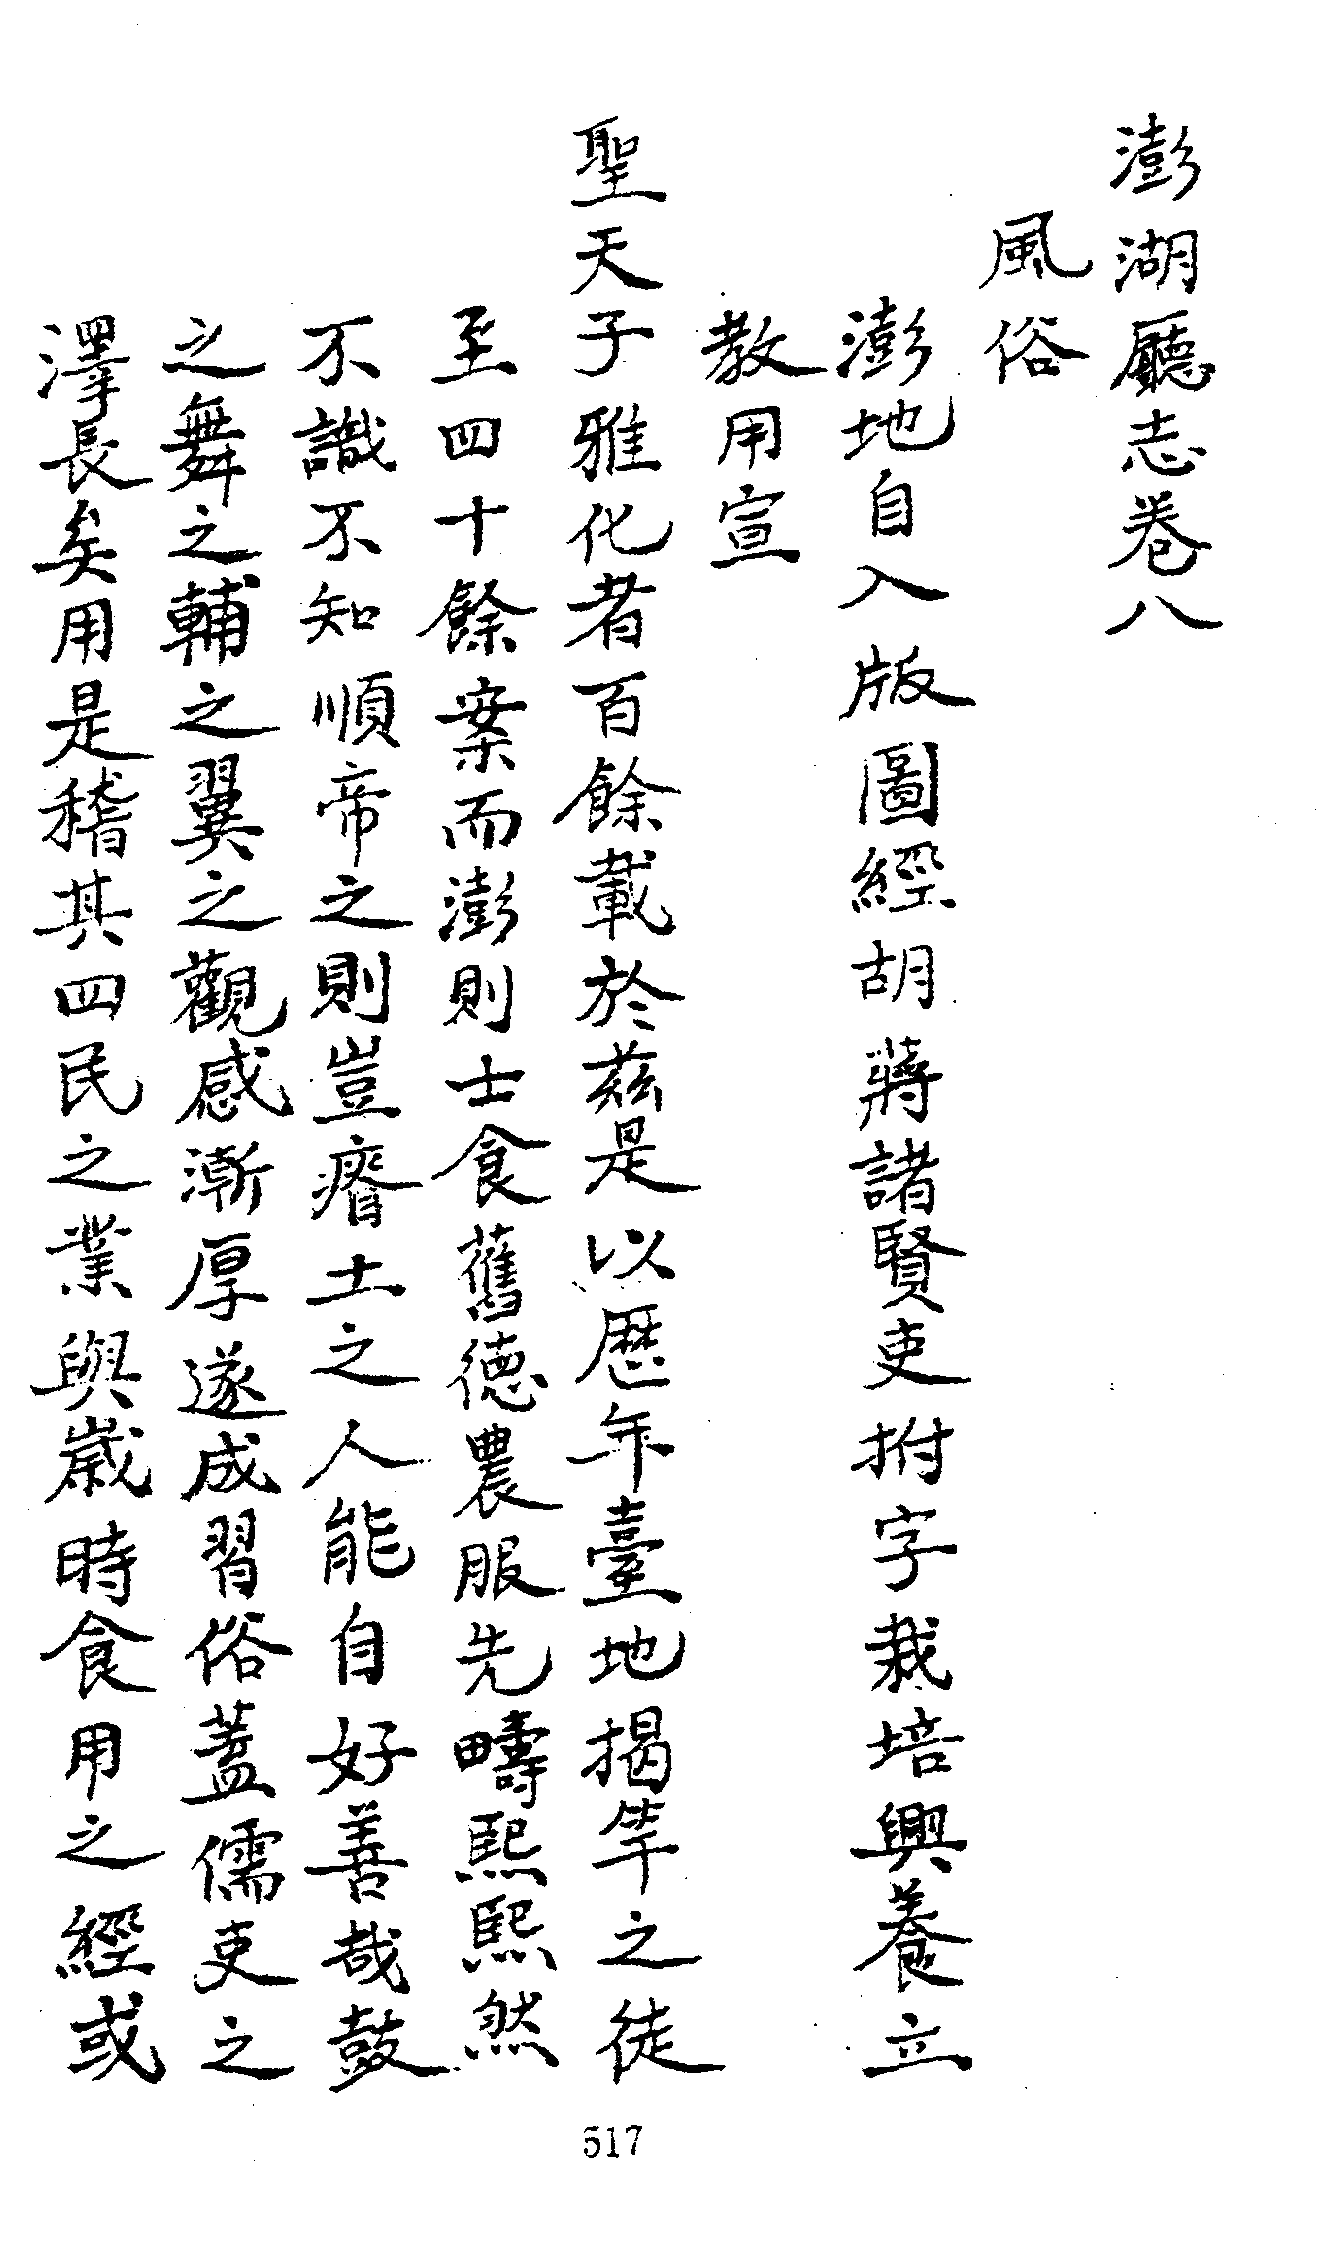 澎湖廳志卷八
風俗
澎地自入版圖經胡蔣諸賢吏拊字栽培興養立
教用宣
聖天子雅化者百餘載於茲是以歷年臺地揭竿之徒
至四十餘案而澎則士食舊德農服先疇熙熙然
不識不知順帝之則豈瘠土之人能自好善哉鼓
之舞之輔之翼之觀感漸厚遂成習俗蓋儒吏之
澤長矣用是稽其四民之業與歲時食用之經或
517